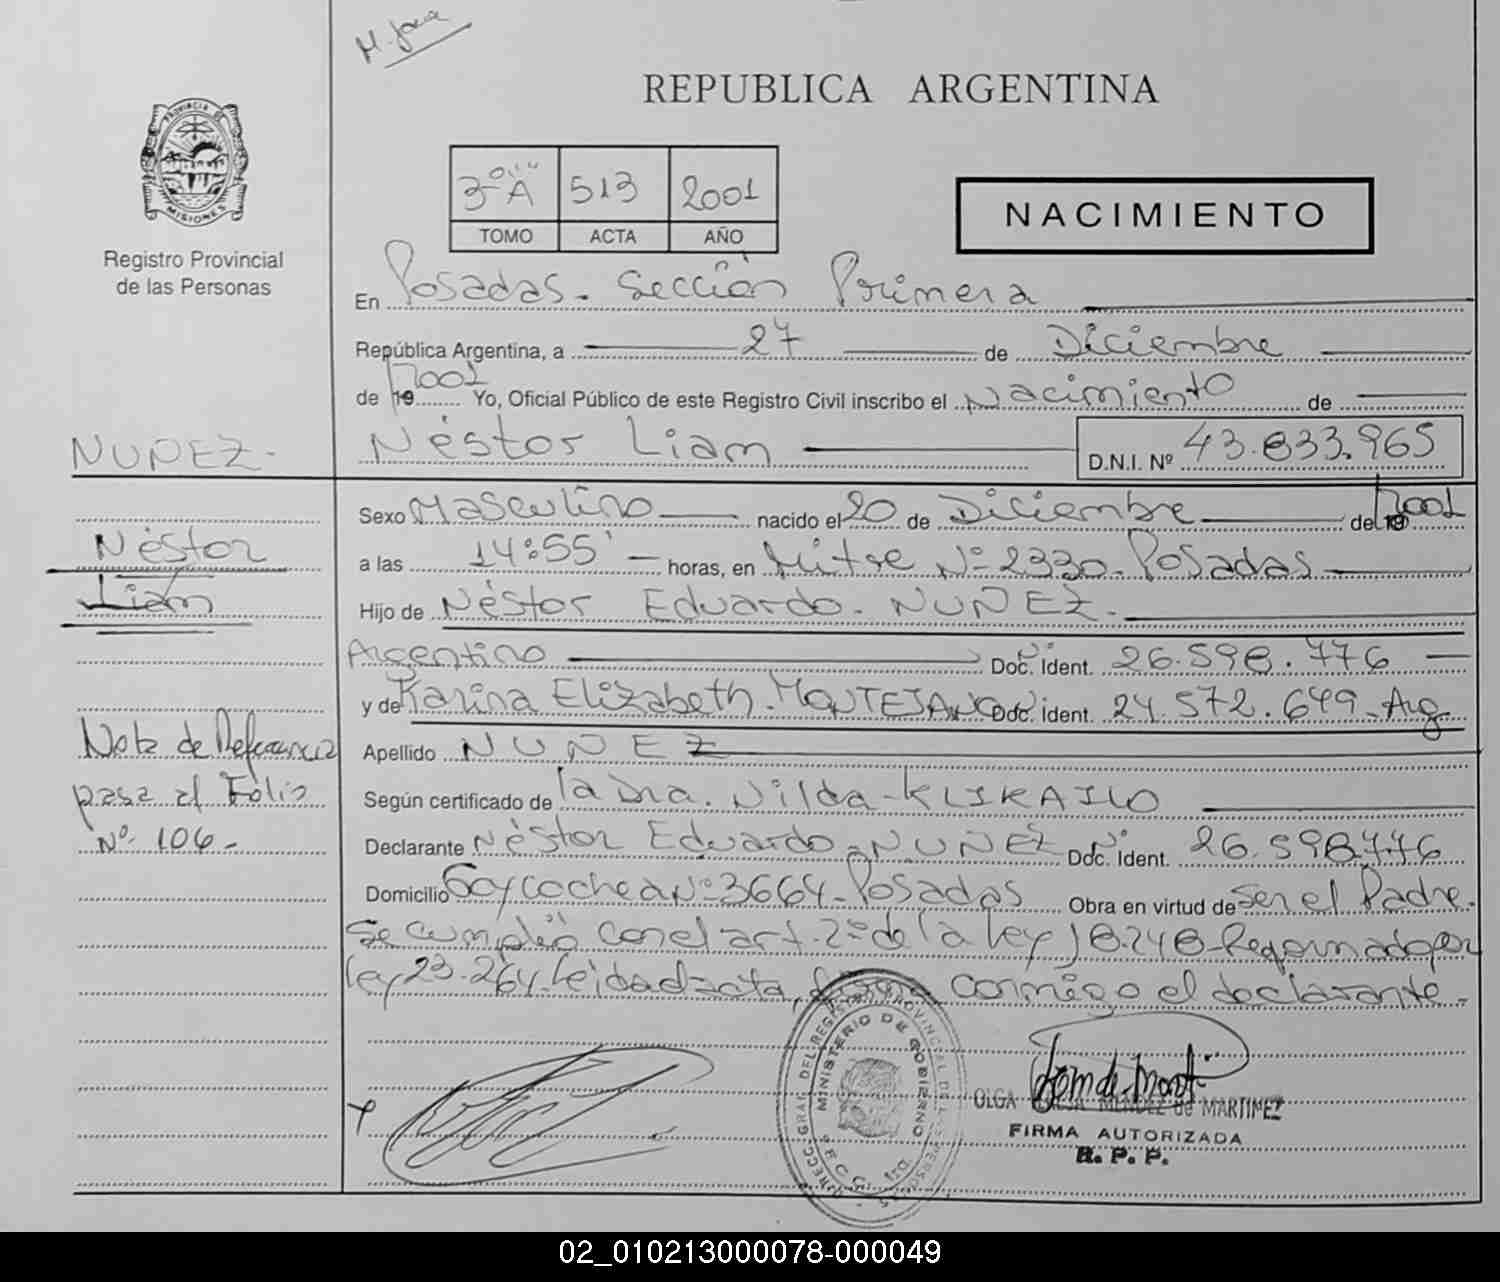 M. Jara
REPUBLICA ARGENTINA
PROVINCIA DE
MISIONES
Registro Provincial
de las Personas
3º A 513 2001
TOMO ACTA AÑO
NACIMIENTO
En Posadas. Sección Primera
República Argentina, a 27 de Diciembre
de 19 2001 Yo, Oficial Público de este Registro Civil inscribo el Nacimiento de
NUÑEZ. Néstor Liam D.N.I. Nº 43.833.965
Néstor
Liam
Sexo Masculino nacido el 20 de Diciembre de 19 2001
a las 14:55' horas, en Mitre Nº 2330. Posadas
Hijo de Néstor Eduardo. NUÑEZ.
Argentino Doc. Ident. 26.598.776
y de Karina Elizabeth. MONTEJANO Doc. Ident. 24.572.649 - Arg.
Apellido NUÑEZ
Según certificado de la Dra. Nilda KLIKAILO
Declarante Néstor Eduardo NUÑEZ Doc. Ident. 26.598.776
Domicilio Goycochea Nº 3664. Posadas Obra en virtud de ser el Padre.
Nota de Referencia
pasa al Folio
Nº 106 -
Se cumplió con el art. 2º de la ley 18.248 - Reformado por
ley 23.264. Leída el acta, firma conmigo el declarante.
DIRECC. GRAL. DEL REGISTRO PROVINCIAL DE LAS PERSONAS
MINISTERIO DE GOBIERNO
SECC. 1ra.
OLGA MENDEZ de MARTINEZ
FIRMA AUTORIZADA
R. P. P.
02_010213000078-000049